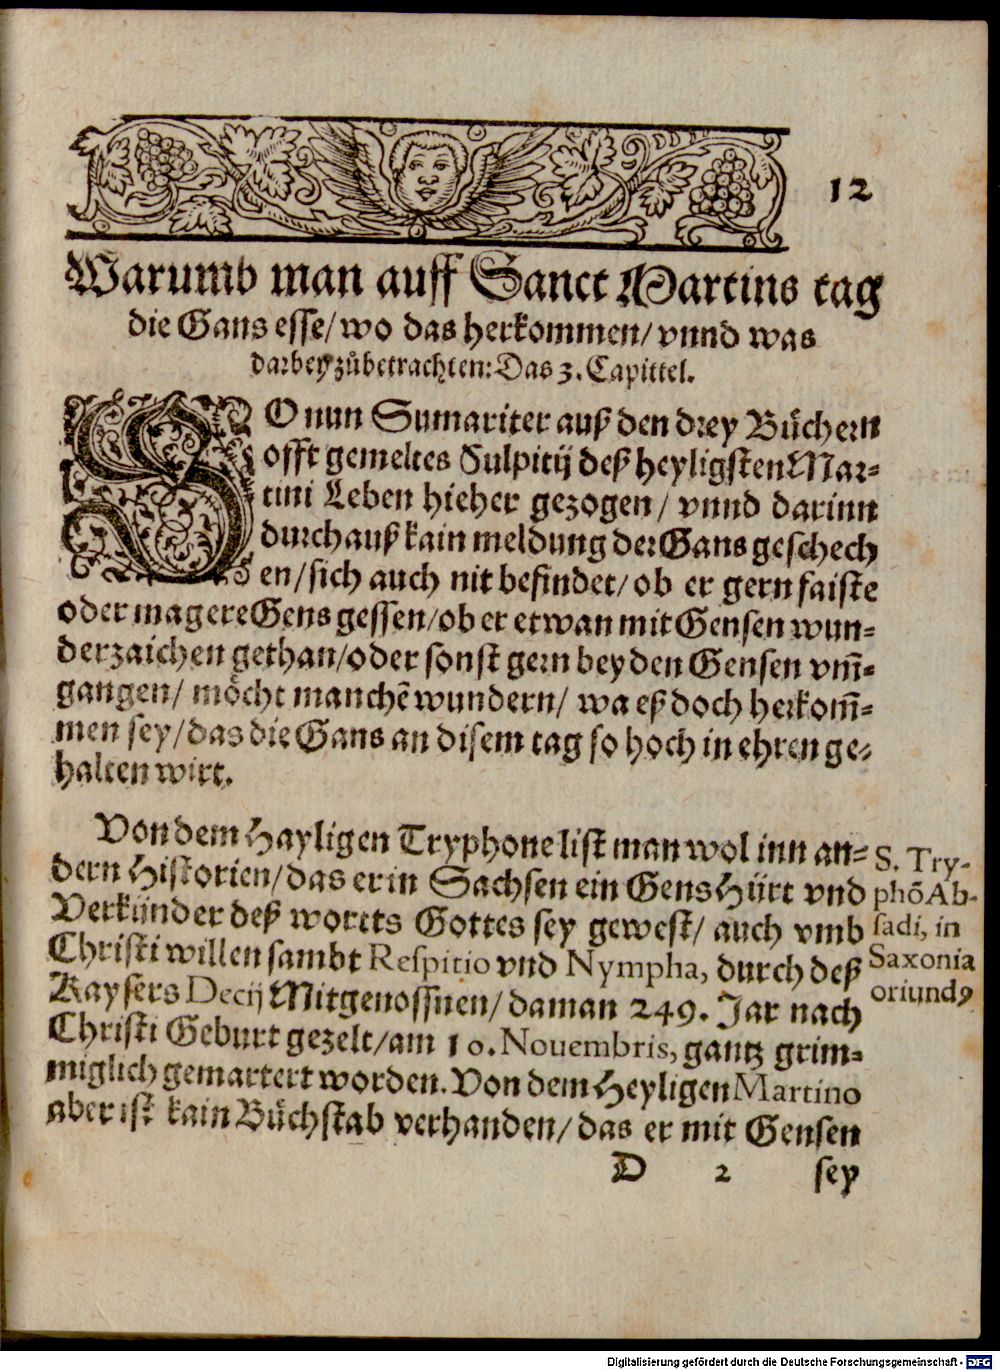 12
Warumb man auff Sanct Martins tag
die Gans esse/ wo das herkommen/ vnnd was
darbey zůbetrachten: Das 3. Capittel.
SO nun Sumariter auß den drey Bůchern
offt gemeltes Sulpitij deß heyligsten Mar-
tini Leben hieher gezogen/ vnnd darinn
durchauß kain meldung der Gans geschech
en/ sich auch nit befindet/ ob er gern faiste
oder magere Gens gessen/ ob er etwan mit Gensen wun-
derzaichen gethan/ oder sonst gern bey den Gensen vm̃-
gangen/ mo͑cht manchẽ wundern/ wa eß doch herkom̃-
men sey/ das die Gans an disem tag so hoch in ehren ge-
halten wirt.
Von dem Hayligen Tryphone list man wol inn an-
dern Historien/ das er in Sachsen ein Gens Hürt vnd
Verkünder deß worts Gottes sey gewest/ auch vmb
Christi willen sambt Respitio vnd Nympha, durch deß
Kaysers Decij Mitgenossnen/ da man 249. Jar nach
Christi Geburt gezelt/ am 10. Nouembris, gantz grim-
miglich gemartert worden. Von dem Heyligen Martino
aber ist kain Bůchstab verhanden/ das er mit Gensen
S. Try-
phõ Ab-
sadi, in
Saxonia
oriundꝰ
D 2 sey
Digitalisierung gefördert durch die Deutsche Forschungsgemeinschaft - DFG